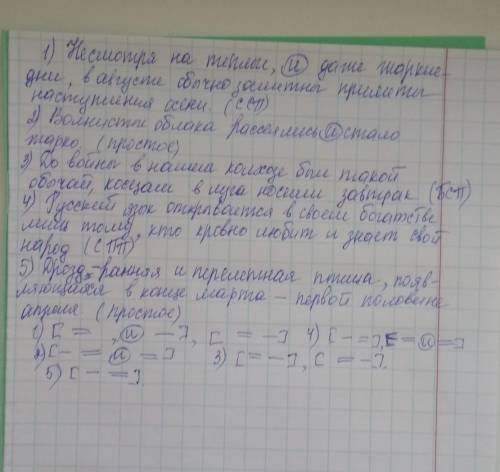 1) Несмотря на теплые, и даже жаркие
дни, в августе обычно заметны приметы
наступления осени. (ССП)
2) Волнистые облака рассеялись и стало
жарко. (простое)
3) До войны в нашем колхозе был такой
обычай, косцам в луга носили завтрак. (БСП)
4) Русский язык открывается в своем богатстве
лишь тому, кто кровно любит и знает свой
народ (СПП)
5) Дрозд - ранняя и перелетная птица, появ-
ляющаяся в конце марта - первой половине
апреля. (простое)
1) [ = , и - ], [ = - ] 4) [ - = ], [ = и = ]
2) [ - = и = ] 3) [ = - ], [ = - ].
5) [ - = ].